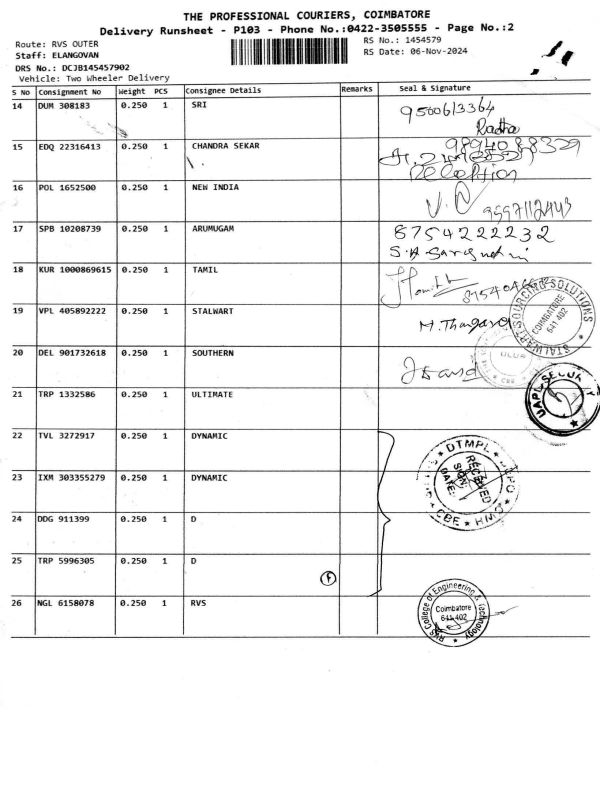 THE PROFESSIONAL COURIERS, COIMBATORE
Delivery Runsheet - P103 - Phone No.:0422-3505555 - Page No.:2
Route: RVS OUTER
RS No.: 1454579
Staff: ELANGOVAN
RS Date: 06-Nov-2024
DRS No.: DCJB145457902
Vehicle: Two Wheeler Delivery
S No Consignment No Weight PCS Consignee Details Remarks Seal & Signature
14 DUM 308183 0.250 1 SRI 9500613364
Radha
15 EDQ 22316413 0.250 1 CHANDRA SEKAR 9894088329
16 POL 1652500 0.250 1 NEW INDIA
17 SPB 10208739 0.250 1 ARUMUGAM 8754222232
18 KUR 1000869615 0.250 1 TAMIL
19 VPL 405892222 0.250 1 STALWART M. Thangaraj
STALWART SOURCING SOLUTIONS
COIMBATORE
641 402
20 DEL 901732618 0.250 1 SOUTHERN
CBE
21 TRP 1332586 0.250 1 ULTIMATE
UAPL-SECURITY
22 TVL 3272917 0.250 1 DYNAMIC
DTMPL
RECEIVED
SIGN:
DATE:
CBE HMC
23 IXM 303355279 0.250 1 DYNAMIC
24 DDG 911399 0.250 1 D
25 TRP 5996305 0.250 1 D
26 NGL 6158078 0.250 1 RVS
RVS College of Engineering & Technology
Coimbatore
641 402